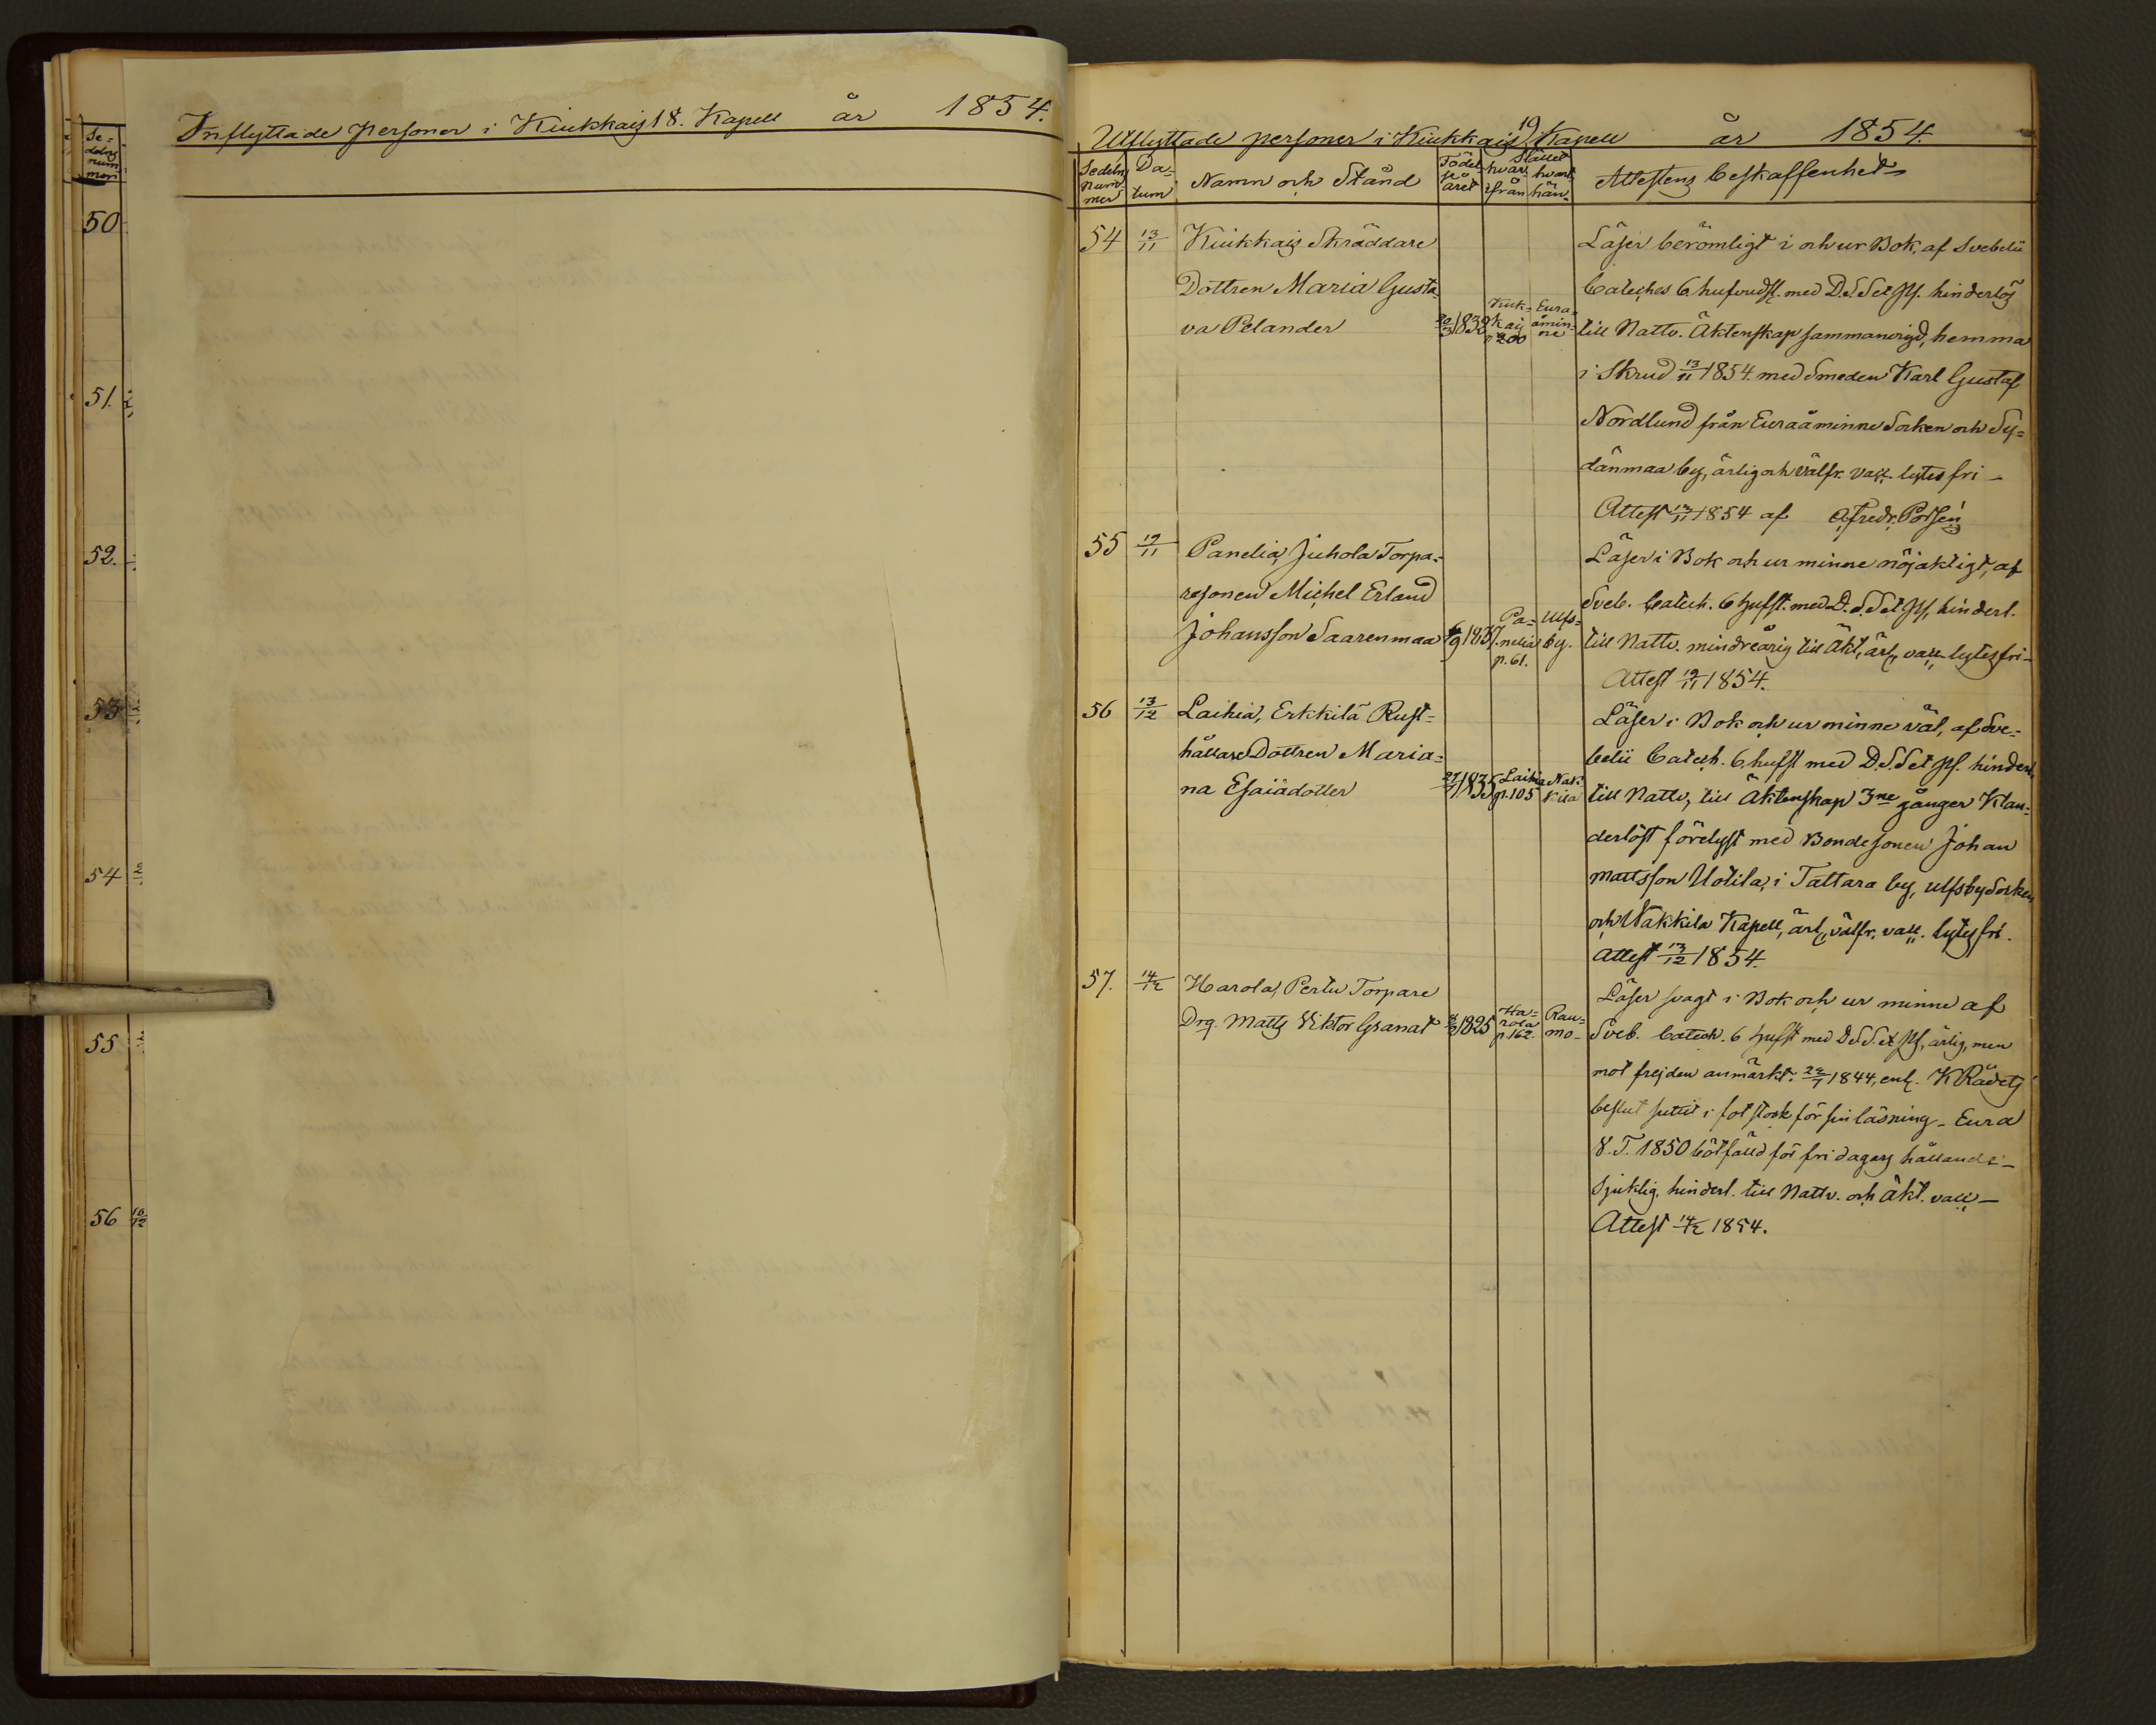 Se-
delns
num-
mer
50
51.
52.
53
54
55
56 16/12
Inflyttade personer i Kiukkais 18. Kapell år 1854.
Utflyttade personer i Kiukkais 19 Kapell år 1854.
Sedelns
num-
mer
Da-
tum
Namn och Stånd
Födel-
se
året
Stället
hvar- hvart
ifrån hän-
Attestens beskaffenhet
54 13/11 Kiukkais Skräddare
Dottren Maria Gusta-
va Pelander 1832 Kiuk-
kais
p 200
Eura-
åmin-
ne
Läser berömligt i och ur Bok, af Svebelii
Cateches 6 hufvudst. med D.S.S et ps. hinderlös
till Nattv. Äktenskap sammanvigd, hemma
i Skrud 13/11 1854. med Smeden Karl Gustaf
Nordlund från Euraåminne Socken och Sy-
dänmaa by, ärlig och välfr. vacc. lytes fri
Attest 13/11 1854 af
55 19/11 Panelia, Juhola Torpa-
resonen Michel Erland
Johansson Saarenmaa 6/9 1837. Pa-
nelia
p. 61.
Ulfs-
by.
Läser i Bok och ur minne nöjaktigt, af
Sveb. Catech. 6 hufst. med D.S.S et ps, hinderl.
till Nattv. mindreårig till Äkt, ärl, vacc. lytes fri
Attest 19/11 1854.
56 13/12 Laihia, Erkkilä Rust-
hållare Dottren Maria-
na Esaiädotter 1835 Laihia
p. 105
Nak-
kila
Läser i Bok och ur minne väl, af Sve-
belii Catech. 6 hufst med D.S.S et ps. hinderl.
till Nattv, till Äktenskap 3ne gånger Klan-
derlöst förelyst med Bondesonen Johan
Mattsson Uotila, i Tattara by, Ulfsby Socken
och Nakkila Kapell, ärl, välfr. vacc. lytes fri.
Attest 13/12 1854.
57. 14/12 Harola, Pertu Torpare
Drg. Matts Viktor Granat 1825 Ha-
rola
p. 162.
Rau-
mo
Läser svagt i Bok och ur minne af
Sveb. Catech. 6 hufst med D.S.S. et ps, ärlig, men
mot frejden anmärkt: 1844, enl. K Rådets
beslut suttit i fotstock för sin läsning - Eura
V.T. 1850 bötfälld för fridagars hållande -
Sjuklig, hinderl. till Nattv. och äkt. vacc -
Attest 14/12 1854.